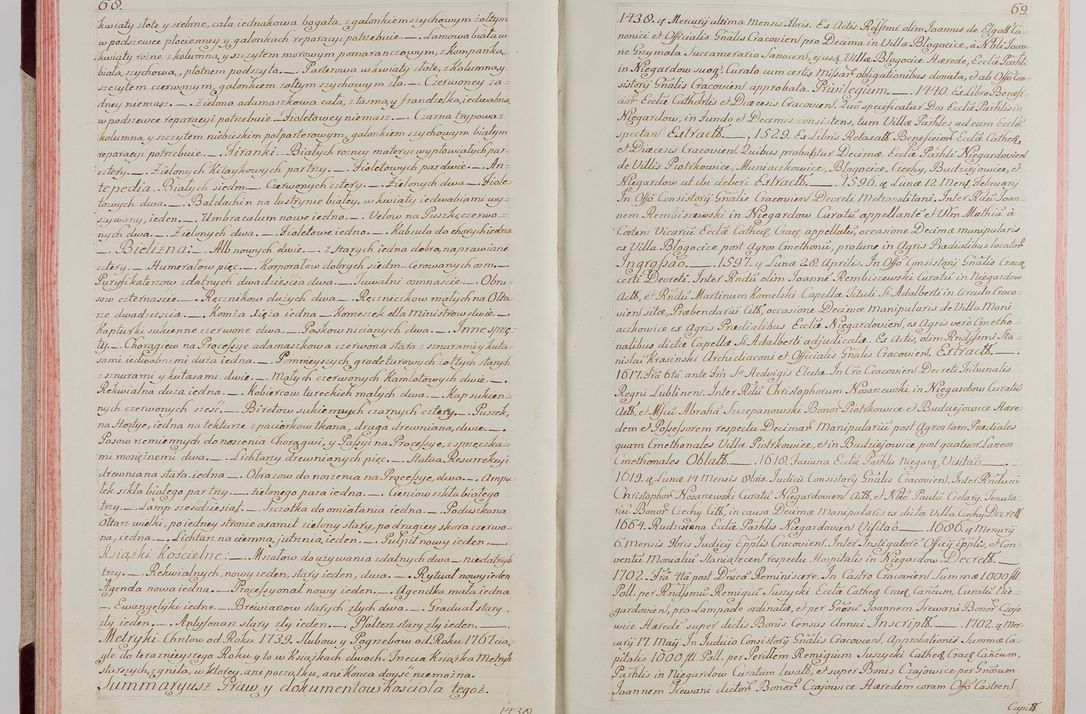 68.
kwiaty złote y srebrne, cała iednakowa bogata, z galonkiem szychowym żołtym
w podszewce płociennej y galonkach reparacyi potrzebuie. — Lamowa biała w
kwiaty rożne z kolumną y szczytem morowym pomaranczowym, z Kompanką
białą szychową, płotnem podszyta. — Parterowa w kwiaty złote, z Kolumną y
szczytem czerwonym, galonkiem żołtym szychowym zła. — Czerwoney ża-
dney niemasz. — Zielono adamaszkowa cała, z tasmą y frandzelką iedwabną,
w podszewce reparacyi potrzebuie. Fioletowey niemasz. — Czarna trypowa z
kolumną y szczytem niebieskim połparterowym, galonkiem szychowym białym
reparacyi potrzebuie. — Firanki. — Białych rożney materyi wypłowiałych par
cztery. — Zielonych Kitaykowych par trzy. — Fioletowych par dwie. — An-
tepedia. Białych siedm. — Czerwonych cztery. — Zielonych dwa. — Fiole-
towych dwa. — Baldachin na lustrynie białey, w kwiaty iedwabiem wy-
szywany, ieden. — Umbraculum nowe iedno. — Velow na Puszkę, czerwo-
nych dwa. — Zielonych dwa. — Fioletowe iedno. — Kabsula do chorych iedna
— Bielizna: — Alb nowych dwie. — z starych iedna dobra, naprawiane
cztery. — Humerałow pięc. — Korporałow dobrych siedm Cerowanych osm. —
Puryfikaterzow zdatnych dwadziescia dwa. — Tuwalni omnascie. — Obru-
sow czternascie. — Ręcznikow dużych dwa. — Ręczniczkow małych na Olta-
rze dwadziescia. — Komża Xięża iedna. Komeszek dla Ministrow dwie. —
Kapturki sukienne czerwone dwa. — Paskow nicianych dwa. — Inne sprzę-
ty. — Chorągiew na Processye adamaszkowa czerwona stara z sznurami y kuta-
sami iedwabnemi duża iedna. — Pomnieyszych, grodeturowych żołtych starych
z sznurami y kutasami dwie. — Małych czerwonych Kamlotowych dwie. —
Rekwialna duża iedna. — Kobiercow tureckich małych dwa. — Kap sukien-
nych czerwonych szesc. — Biretow sukiennych czarnych cztery. — Puszek,
na Hostye, iedna na tekturze z paciorkow tkana, druga drewniana, dwie. —
Pasow rzemiennych do noszenia Chorągwi, y Passyi na Processye, z sprzeczka-
mi mosiężnemi dwa. — Lichtarzy drewnianych pięc. — Statua Resurrekcyi
drewniana stara iedna. — Obrazow do noszenia na Processye, dwa. — Ampu-
łek szkła białego par trzy. — zielonego para iedna. — Cieniow szkła białego
trzy. — Lamp szesdziesiąt. — Szczotka do omiatania iedna. — Poduszka na
Ołtarz wielki, po iedney stronie axamit zielony stary, po drugiey skora czerwo-
na, iedna. — Lichtarz na ciemną jutrznią ieden. — Pulpit nowy ieden. —
Książki Koscielne: — Mszałow do używania zdatnych dwa — niezdatnych
trzy. — Rekwialnych, nowy ieden, stary ieden, dwa. — Rytuał nowy ieden
Agenda nowa iedna. — Processyonał nowy ieden. — Agendka mała iedna
— Ewangeliyki iedne. — Brewiarzow starych złych dwa. — Graduał stary
zły ieden. — Antyfonarz stary zły ieden. — Psałterz stary zły ieden. —
Metryki. Chrztow od Roku 1739. Slubow y Pogrzebow od Roku 1767. cią-
gle do teraznieyszego Roku y to w Książkach dwoch. Trzecia Książka Metryk
starszych, zgniła, w ktorey ani początku, ani Konca doysc niemożna.
Summaryusz Praw y dokumentow Kosciola tegoż.
1438.
69.
1438. ꝗ Mercurij ultima Mensis Xbris. Ex Actis Rssmi olim Joannis de Elgott Ca-
nonici et Officialis Gnalis Cracovien pro Decima in Villa Blogocice, à Nble Joan-
ne Grzymala Succamerario Sanocen, ejusq Villæ Blogocice Hærede, Ecclæ Parhli
in Niegardow suoq Curato cum certis Missar obligationibus donata, et ab Offo Con-
sistorij Gnalis Cracovien approbata. Privilegium. — 1440. Ex Libro Benefi-
cior Ecclæ Cathdrlis et Diæcesis Cracovien. Quo specificatur Dos Ecclæ Parhlis in
Niegardow, in fundo et Decimis consistens, tum Villæ Parhles, ad eam Ecclæ
spectan Extractt. — 1529. Ex Libris Retaxatt. Beneficior Ecclæ Cathed
et Diæcesis Cracovien. Quibus probabitur Decimæ Ecclæ Parhli Niegardovien
de Villis Piotrkowice, Muniaczkowice, Blogocice, Czechy, Budziejowice, et
Niegardow ut dn deberi. Extractt. — 1596. ꝗ Lunæ 12. Mens February
In Offo Consistorij Gnalis Cracovien Decreti Metropolitani. Inter Rdu Joan-
nem Rembiszewski in Niegardow Curatu appellante et Vlm Mathia à
Costen Vicariu Ecclæ Cathed Crac appellatu, occasione Decimæ manipularis
ex Villa Blogocice post Agro Cmethonu, protunc in Agris Prædialibus locatar
Ingrossao. — 1597. ꝗ Lunæ 28. Aprilis. In Offo Consistorij Gnalis Crac
certi Decreti. Inter Rndu olim Joanne Rembiszewski Curatu in Niegardow
Actt, et Rndu Martinum Komelski Capellæ Tituli S. Adalberti in Circulo Craco-
vien sitæ, Præbendariu Citt, occasione Decimæ Manipularis de Villa Mani-
aczkowice ex Agris Prædialibus Ecclæ Niegardovien, ex Agris vero Cmetho-
nalibus dictæ Capellæ S. Adalberti adjudicatæ. Ex Actis, olim Rndssmi Sta-
nislai Krasinski Archidiaconi et Officialis Gnalis Cracovien. Extractt. —
1617. Fra 6ta ante Frā S. Hedvigis Electæ. In Cro Cracovien Decreti Tribunalis
Regni Lublinen. Inter Rdu Christophorum Nosarzewski in Niegardow Curatu
Actt, et Mfcu Abrahā Szczepanowski Bonor Piotrkowice et Budziejowice Hære-
dem et Possessorem respectu Decimar Manipulariu post Agros tam Prædiales
quam Cmethonales Villæ Piotrkowice, et in Budziejowice post quatuor Laneos
Cmethonales Oblatt. — 1618. Tasiana Ecclæ Parhlis Niegarą. Visitao. —
1619. ꝗ Lunæ 14 Mensis Obris. Judicii Consistorij Gnalis Cracovien. Inter Rndum
Christophor Nosarzewski Curatu Niegardovien Actt, et Nble Paulu Cielary, Tenuta-
riu Bonor Czechy Citt, in causa Decimæ Manipularis ex dicta Villa Czechy. Decrett
1664. Rudziniana Ecclæ Parhlis Niegardovien Visitao. — 1696. ꝗ Mercurij
6. Mensis Xbris Judicij Epplis Cracovien. Inter Instigatore Officij Epplis, et Con-
ventu Monialiu Staniątecen respectu Hospitalis in Niegardow. Decrett. —
1702. Fra 4ta post Dnicā Reminiscere. In Castro Cracovien Summæ 1000 fll.
Poll. per Rndssmu Remigiu Suszycki Ecclæ Cathed Crac Cancum, Curatu Nie-
gardovien, pro Lampade ordinatæ, et per Gnosu Joannem Trewani Bonor Czajo-
wice Hærede super dictis Bonis Census Annui Inscriptt. — 1702. ꝗ Mer-
curij 17. Maij. In Judicio Consistorij Gnalis Cracovien. Approbationis Summæ Ca-
pitali 1000 fll. Poll. per Perillm Remigium Suszycki Cathed Crac Cancum,
Parhlis in Niegardow Curatum levatt, et super Bonis Czajowice per Gnosum
Joannem Trewani dictor Bonor Czajowice Hæredem coram Offo Castren
Capitt